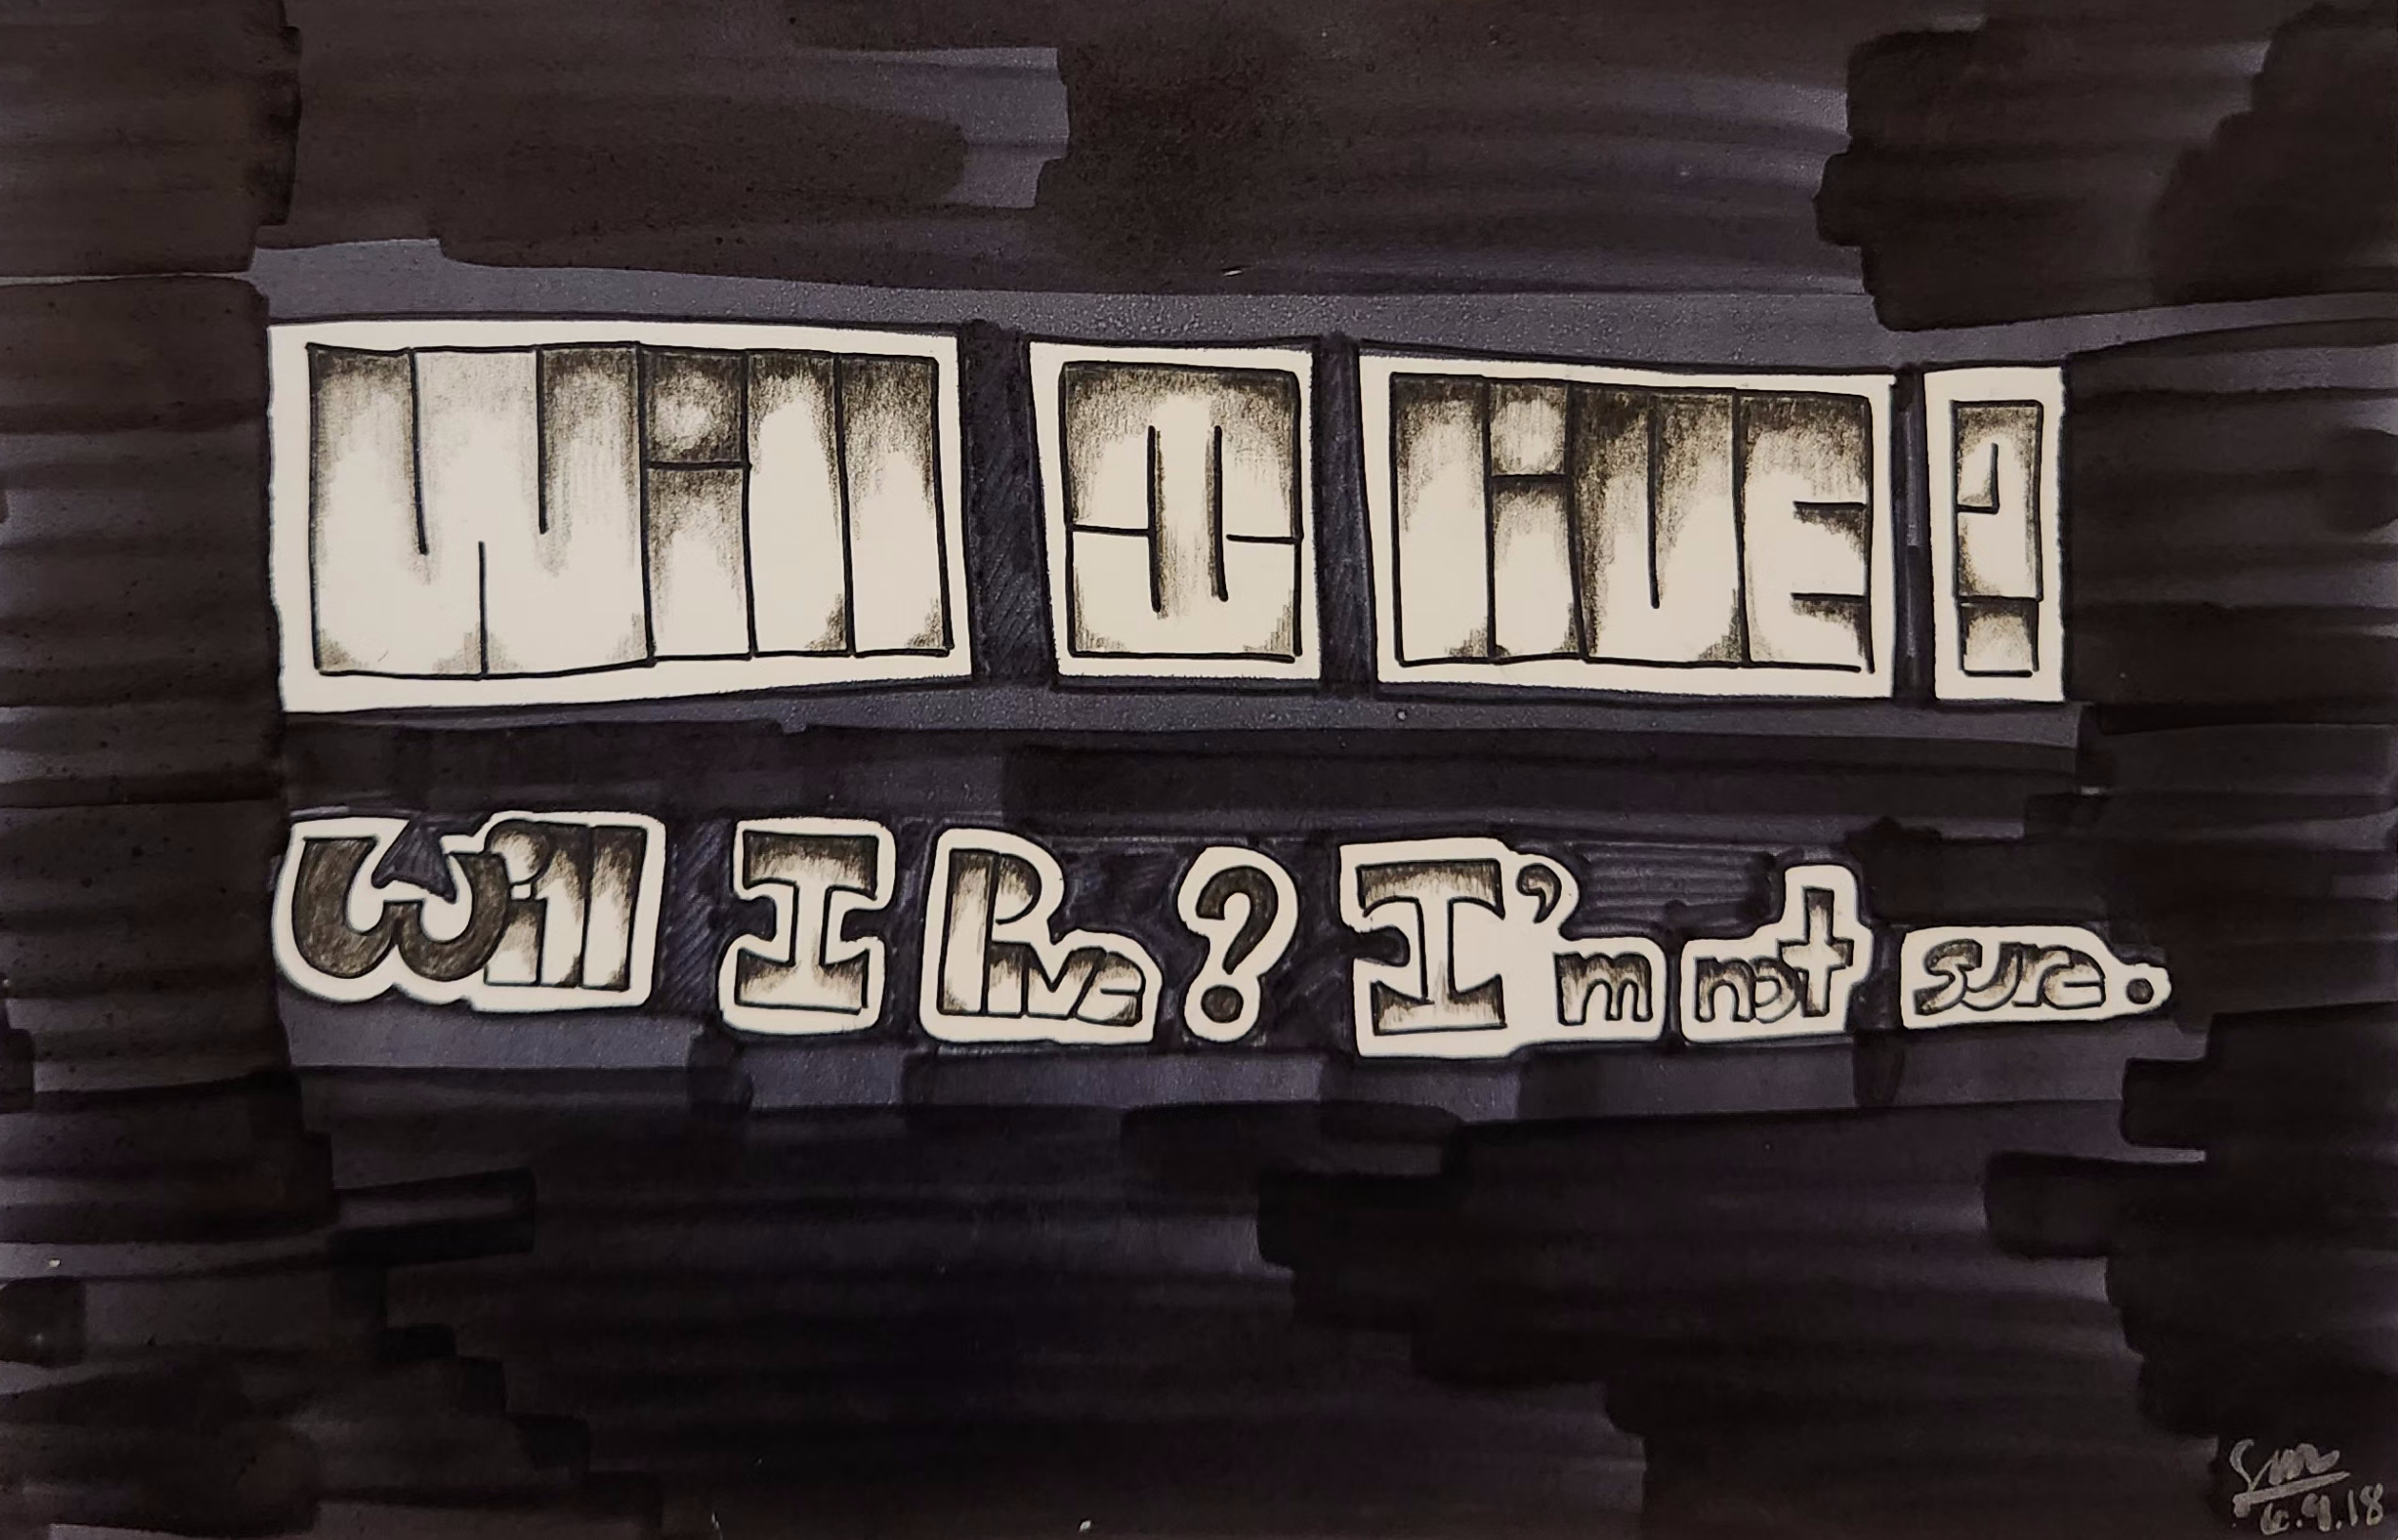 Will I live?
Will I live? I'm not sure.
6.9.18